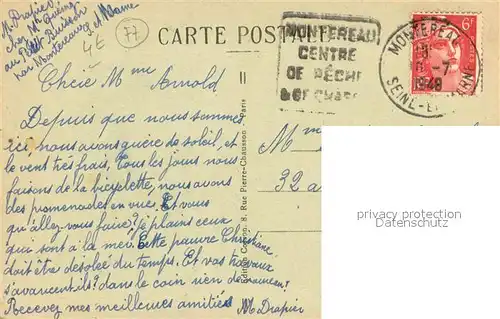 M. Drapier
chez Mr
au Petit Buisson
par Montereau
S et Marne
4E
77
CARTE POSTALE
MONTEREAU
CENTRE
DE PÊCHE
& DE CHASSE
MONTEREAU
-7
1948
SEINE-ET-MARNE
6F
Chère Mme Arnold
Depuis que nous sommes
ici, nous avons guère de soleil, et
le vent très frais. Tous les jours nous
faisons de la bicyclette, nous avons
des promenades en vues. Et vous
qu'allez-vous faire? je plains ceux
qui sont à la mer. Cette pauvre Christiane
doit être desolée du temps. Et vos travaux
s'avancent ils? dans le coin rien de nouveau!
Recevez mes meilleures amitiés
M Drapier
II
Edition Combier, 8, Rue Pierre-Chausson Paris
Mme
32
privacy protection